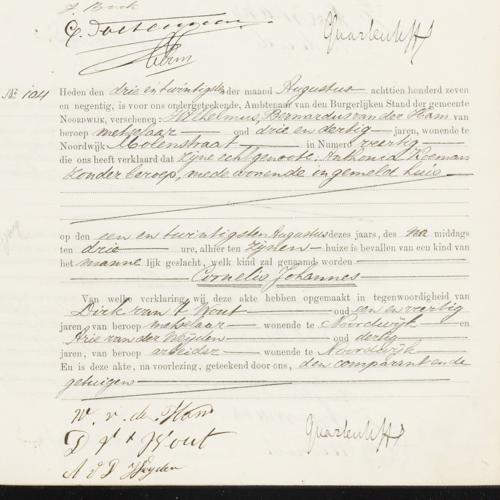 Nº 104
Heden den drie en twintigsten der maand Augustus achttien honderd zeven
en negentig, is voor ons ondergeteekende, Ambtenaar van den Burgerlijken Stand der gemeente
Noordwijk, verschenen: Wilhelmus Bernardus van der Ham, van
beroep metselaar oud drie en dertig jaren, wonende te
Noordwijk Molenstraat in Numero veertig
die ons heeft verklaard dat zijne echtgenoote: Anthonia Koeman
zonder beroep, mede wonende in gemeld huis
op den een en twintigsten Augustus dezes jaars, des na middags
ten drie ure, alhier ten zijnen huize is bevallen van een kind van
het manne lijk geslacht, welk kind zal genaamd worden
Cornelis Johannes
Van welke verklaring wij deze akte hebben opgemaakt in tegenwoordigheid van
Dirk van 't Wout oud een en veertig
jaren, van beroep metselaar wonende te Noordwijk en
Arie van der Weijden oud dertig
jaren, van beroep arbeider wonende te Noordwijk
En is deze akte, na voorlezing, geteekend door ons, den comparant en de
getuigen
W. v. de Ham
D v 't Wout
A v D Weyden